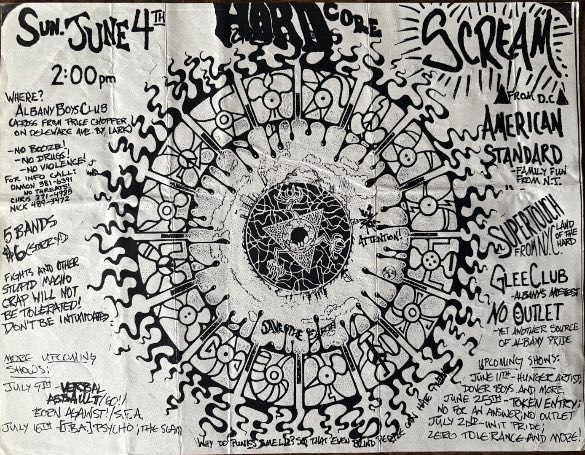 SUN. JUNE 4TH
2:00 pm
HARD CORE
WHERE?
ALBANY BOYS CLUB
(ACROSS FROM PRICE CHOPPER
ON DELEWARE AVE. BY LARK)
-NO BOOZE!
-NO DRUGS!
-NO VIOLENCE!
FOR INFO CALL:
NO THREATS!
5 BANDS
$6 (SORRY!)
FIGHTS AND OTHER
STUPID MACHO
CRAP WILL NOT
BE TOLERATED!
DON'T BE INTIMIDATED.
MORE UPCOMING
SHOWS:
JULY 9TH- VERBAL
ASSAULT
BORN AGAINST! / S.F.A.
JULY 16TH- [T.B.A.] PSYCHO; THE SCAM
ATTENTION!
SCREAM
FROM D.C.
AMERICAN
STANDARD
-FAMILY FUN
FROM N.J.
SUPERTOUCH
FROM N.Y.C. LAND OF THE HARD
GLEE CLUB
-ALBANY'S
NO OUTLET
-YET ANOTHER SOURCE
OF ALBANY PRIDE
UPCOMING SHOWS:
JUNE 11TH- HUNGER ARTIST;
DOUER BOYS AND MORE
JUNE 25TH- TOKEN ENTRY;
NO FOR AN ANSWER; NO OUTLET
JULY 2ND- UNIT PRIDE;
ZERO TOLERANCE AND MORE!
WHY DO PUNKS SMELL? SO THAT EVEN BLIND PEOPLE CAN HATE THEM!